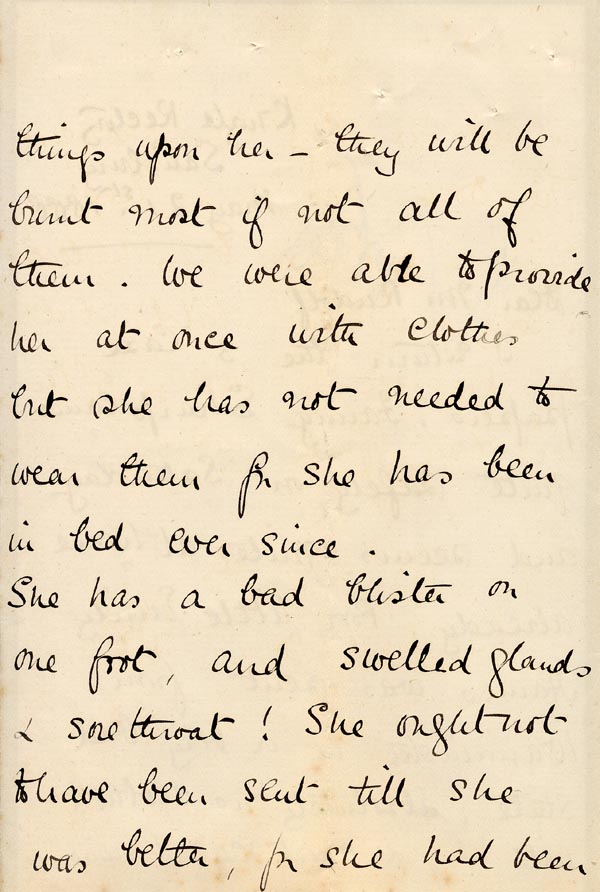 things upon her – they will be
burnt most if not all of
them. We were able to provide
her at once with clothes
but she has not needed to
wear them for she has been
in bed ever since.
She has a bad blister on
one foot, and swelled glands
& sore throat! She ought not
to have been sent till she
was better, for she had been